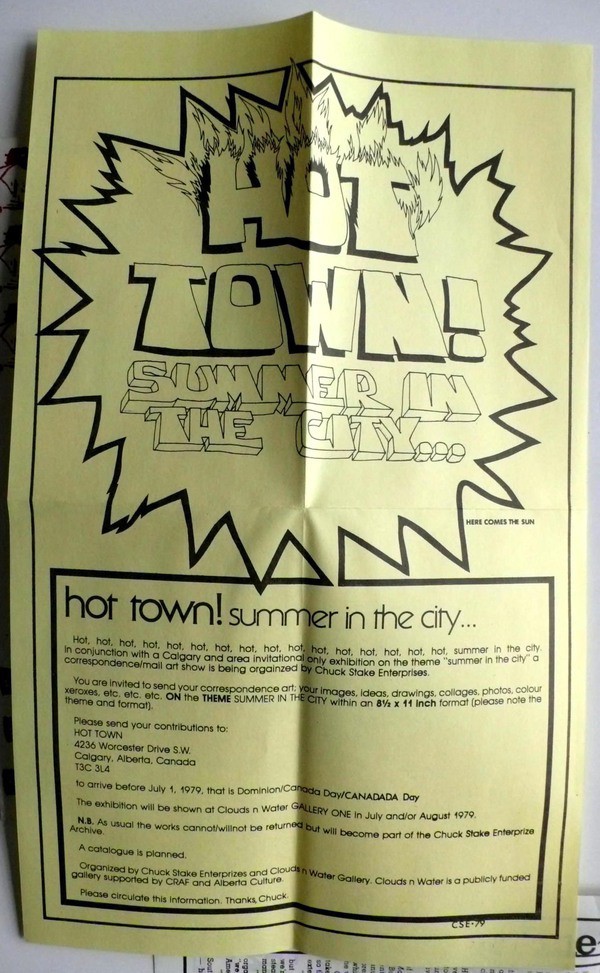 HOT
TOWN!
SUMMER IN
THE CITY...
HERE COMES THE SUN
hot town! summer in the city...
Hot, hot, hot, hot, hot, hot, hot, hot, hot, hot, hot, hot, hot, hot, hot, hot, summer in the city.
In conjunction with a Calgary and area invitational only exhibition on the theme "summer in the city" a
correspondence/mail art show is being orgainzed by Chuck Stake Enterprises.
You are invited to send your correspondence art; your images, ideas, drawings, collages, photos, colour
xeroxes, etc. etc. etc. ON the THEME SUMMER IN THE CITY within an 8½ x 11 inch format (please note the
theme and format).
Please send your contributions to:
HOT TOWN
4236 Worcester Drive S.W.
Calgary, Alberta, Canada
T3C 3L4
to arrive before July 1, 1979, that is Dominion/Canada Day/CANADADA Day
The exhibition will be shown at Clouds n Water GALLERY ONE in July and/or August 1979.
N.B. As usual the works cannot/willnot be returned but will become part of the Chuck Stake Enterprize
Archive.
A catalogue is planned.
Organized by Chuck Stake Enterprizes and Clouds n Water Gallery. Clouds n Water is a publicly funded
gallery supported by CRAF and Alberta Culture.
Please circulate this information. Thanks, Chuck.
CSE·79